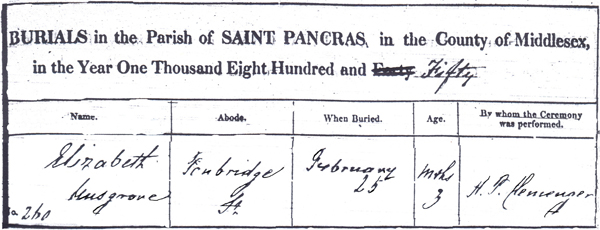 BURIALS in the Parish of SAINT PANCRAS, in the County of Middlesex,
in the Year One Thousand Eight Hundred and Forty Fifty
Name. Abode. When Buried. Age. By whom the Ceremony was performed.
Elizabeth Musgrove
No. 260
Fenbridge St.
February 25
Mths 3
H. P.